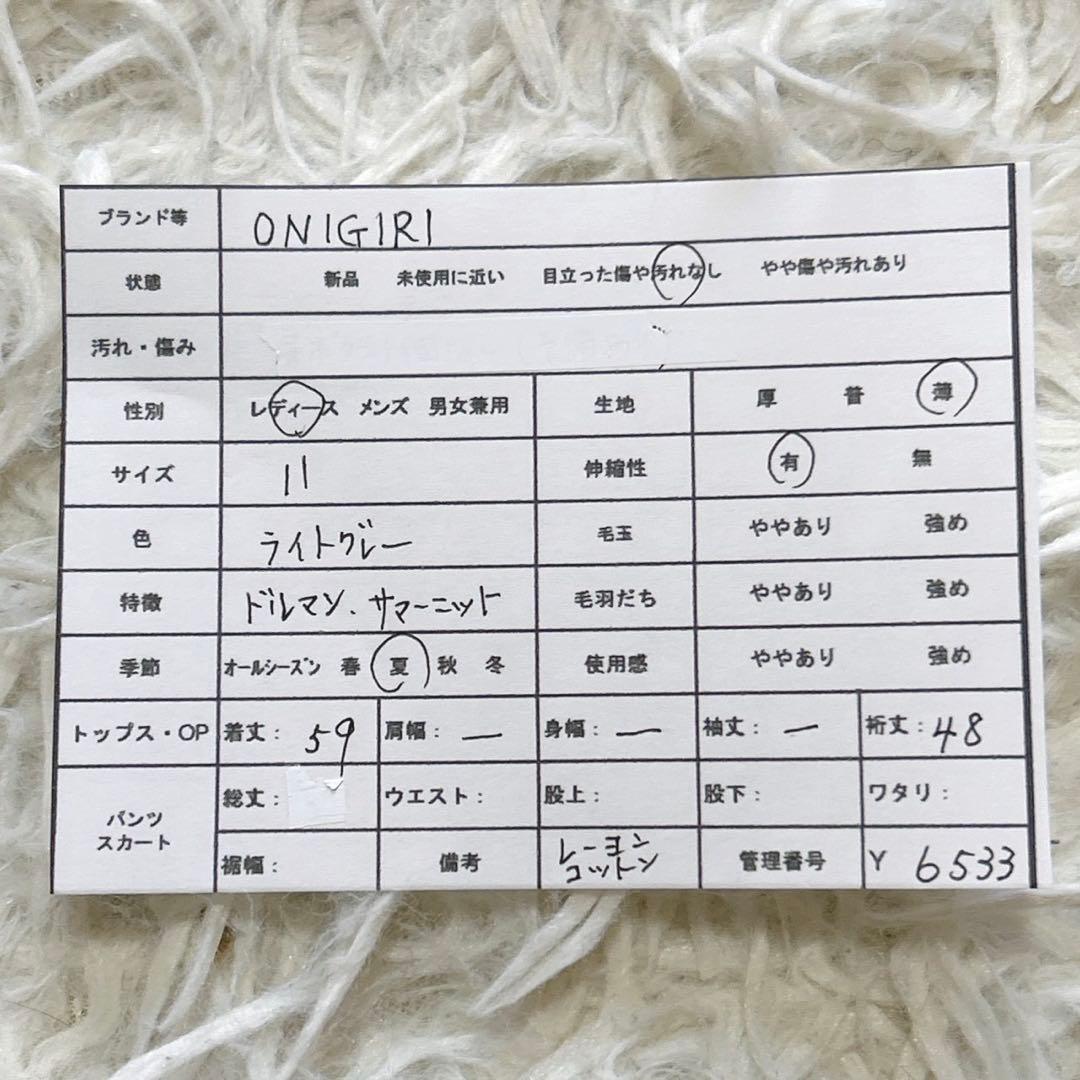 ブランド等 ONIGIRI
状態 新品 未使用に近い 目立った傷や汚れなし やや傷や汚れあり
汚れ・傷み
性別 レディース メンズ 男女兼用 生地 厚 普 薄
サイズ 11 伸縮性 有 無
色 ライトグレー 毛玉 ややあり 強め
特徴 ドルマン、サマーニット 毛羽だち ややあり 強め
季節 オールシーズン 春 夏 秋 冬 使用感 ややあり 強め
トップス・OP 着丈: 59 肩幅: ー 身幅: ー 袖丈: ー 裄丈: 48
パンツ
スカート
総丈: ウエスト: 股上: 股下: ワタリ:
裾幅: 備考 レーヨン
コットン
管理番号 Y 6533